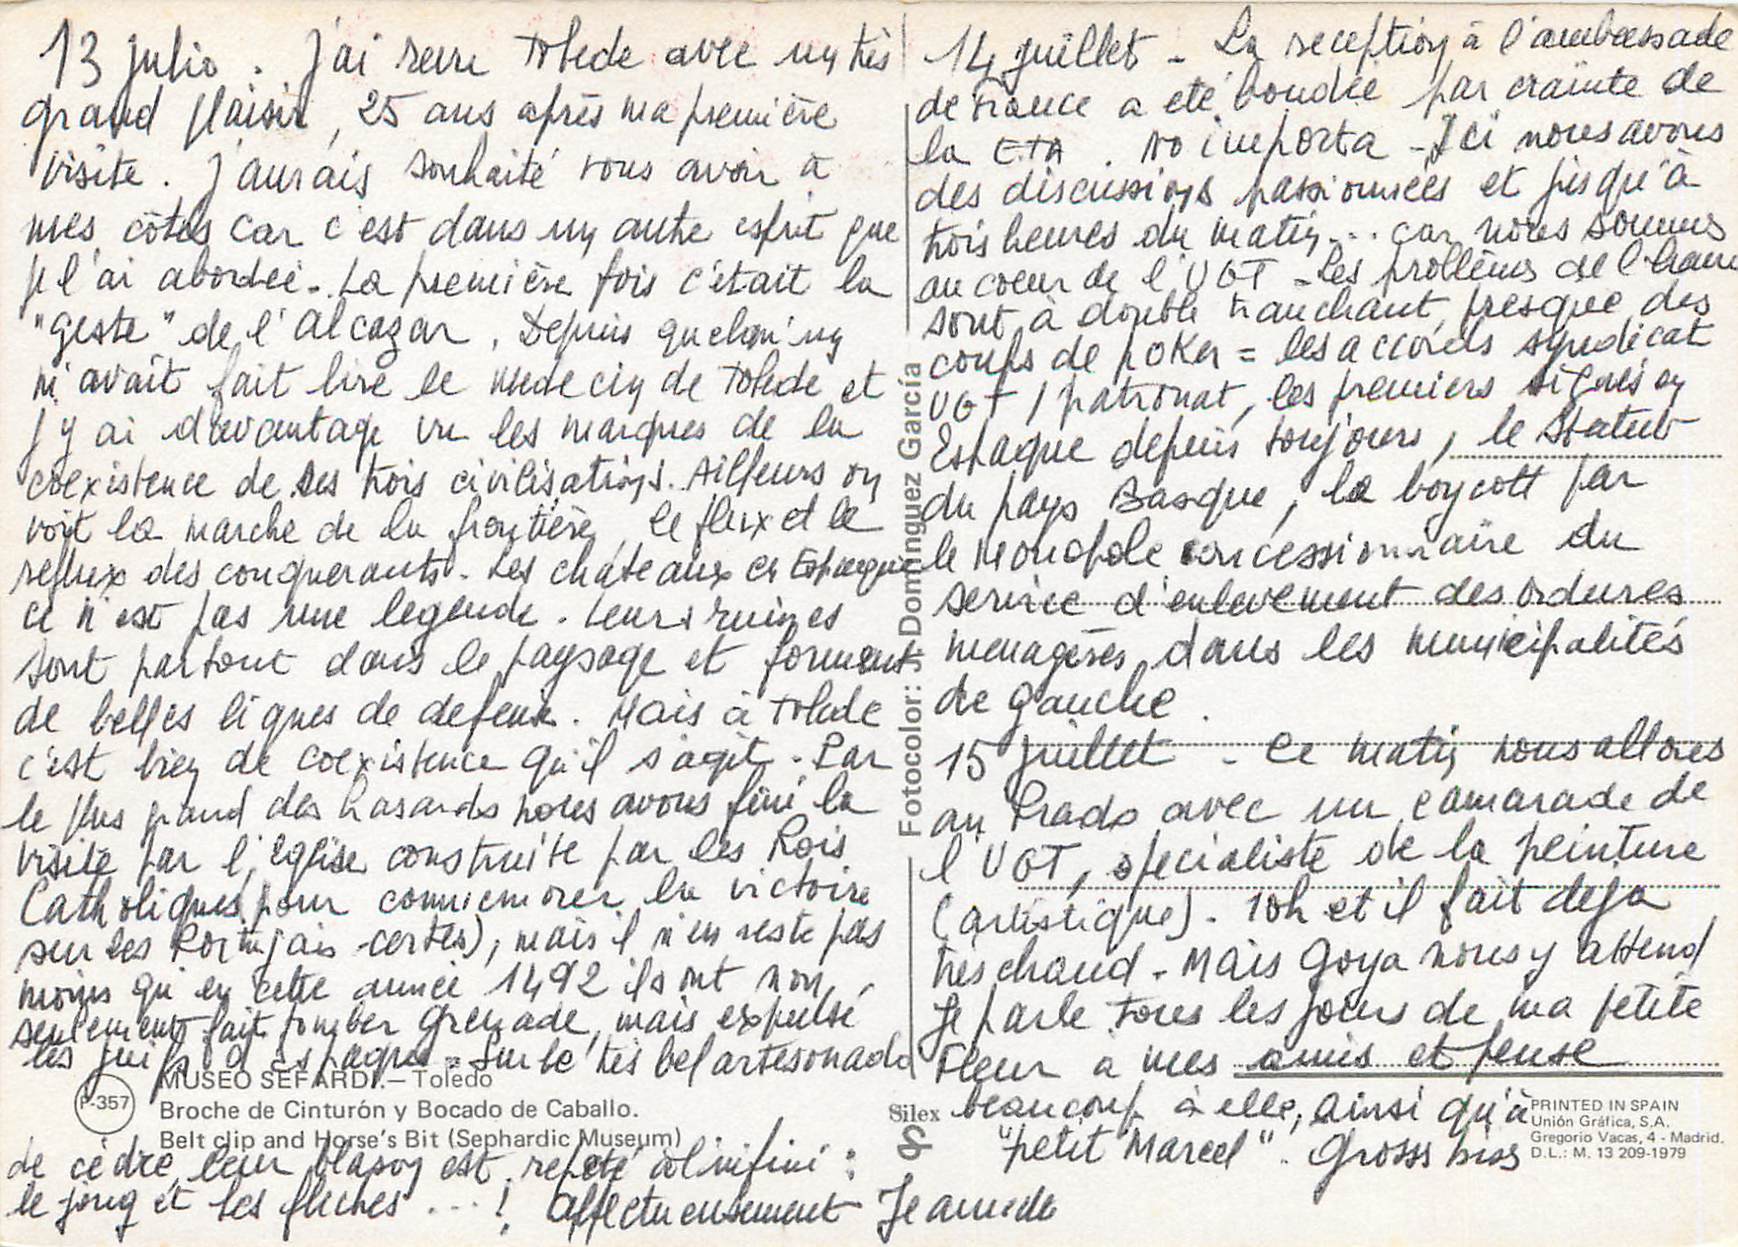 13 Julio. J'ai revu Tolede avec un très
grand plaisir, 25 ans après ma première
visite. J'aurais souhaité vous avoir à
mes côtés car c'est dans un autre esprit que
je l'ai abordée. La première fois c'était la
"geste" de l'Alcazar. Depuis quelqu'un
m'avait fait lire le medecin de Tolede et
j'y ai davantage vu les marques de la
coexistence de ses trois civilisations. Ailleurs on
voit la marche de la frontière, le flux et le
reflux des conquerants. Les châteaux en Espagne
ce n'est pas une legende. Leurs ruines
sont partout dans le paysage et forment
de belles lignes de defense. Mais à Tolede
c'est bien de coexistence qu'il s'agit. Par
le plus grand des hasards nous avons fini la
visite par l'église construite par les Rois
Catholiques pour commemorer la victoire
sur les Portugais certes), mais il n'en reste pas
moins qu'en cette année 1492 ils ont non
seulement fait tomber Grenade, mais expulsé
les juifs d'Espagne. Sur le très bel artesonado
MUSEO SEFARDI.— Toledo
P-357
Broche de Cinturón y Bocado de Caballo.
Belt clip and Horse's Bit (Sephardic Museum)
de cèdre, leur blason est repeté à l'infini :
le joug et les flèches ...! Affectueusement
Fotocolor: J. Domínguez García
Silex
14 juillet - La reception à l'ambassade
de France a eté boudée par crainte de
la ETA. No importa - Ici nous avons
des discussions passionnées et jusqu'à
trois heures du matin... car nous sommes
au coeur de l'UGT - Les problèmes de l'heure
sont à double tranchant, presque des
coups de poker = les accords syndicat
UGT / patronat, les premiers signés en
Espagne depuis toujours, le Statut
du pays Basque, le boycott par
le Monopole concessionnaire du
service d'enlevement des ordures
menagères dans les municipalités
de gauche.
15 juillet - Ce matin nous allons
au Prado avec un camarade de
l'UGT, specialiste de la peinture
(artistique). 10h et il fait deja
très chaud. Mais Goya nous y attend
Je parle tous les jours de ma petite
Fleur à mes amis et pense
beaucoup à elle, ainsi qu'à
"petit Marcel". Gross
PRINTED IN SPAIN
Unión Gráfica, S.A.
Gregorio Vacas, 4 - Madrid.
D.L.: M. 13 209-1979